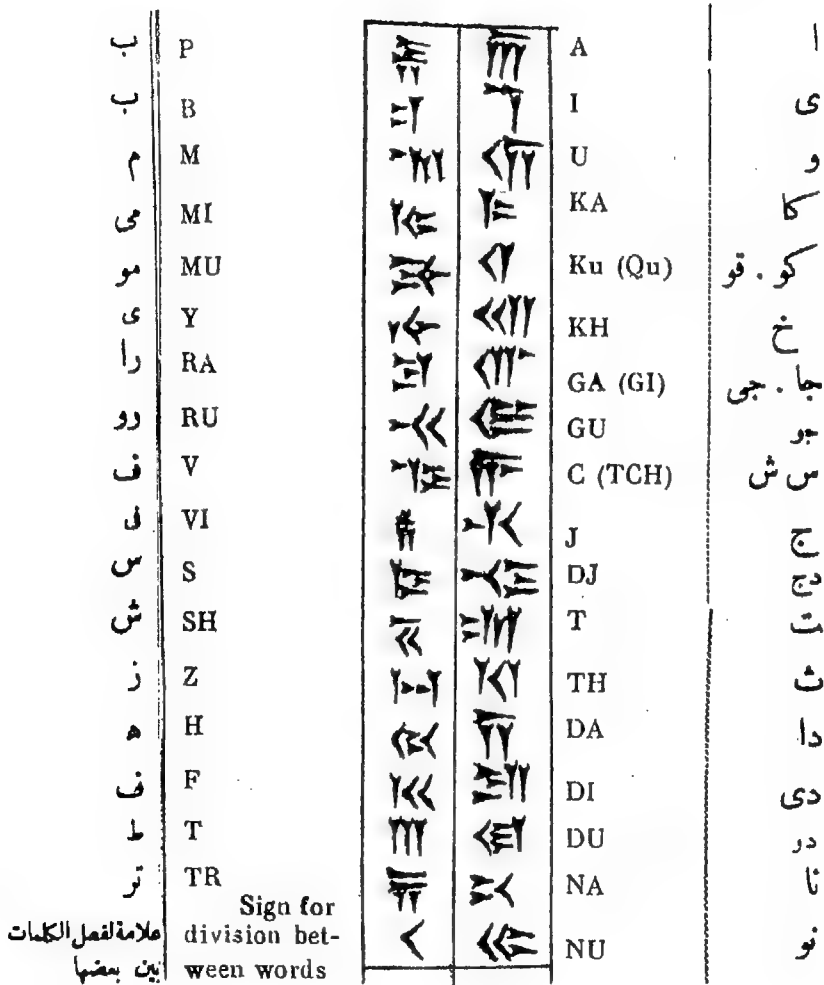 ب P 𐎱 𐎠 A ا
ب B 𐎲 𐎡 I ى
م M 𐎶 𐎢 U و
مى MI 𐎷 𐎣 KA كا
مو MU 𐎸 𐎤 Ku (Qu) كو . قو
ى Y 𐎹 𐎧 KH خ
را RA 𐎼 𐎥 GA (GI) جا . جى
رو RU 𐎽 𐎦 GU جو
ف V 𐎺 𐎨 C (TCH) س ش
فى VI 𐎻 𐎩 J ج
س S 𐎿 𐎪 DJ دج
ش SH 𐏁 𐎫 T ت
ز Z 𐏀 𐎰 TH ث
ه H 𐏃 𐎭 DA دا
ف F 𐎳 𐎮 DI دى
ط T 𐎬 𐎯 DU دو
تر TR 𐏂 𐎴 NA نا
علامة لفصل الكلمات بين بعضها Sign for division bet-ween words 𐏐 𐎵 NU نو